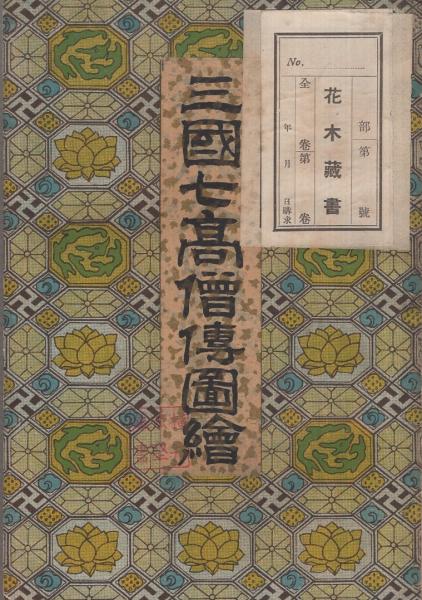 三國七高僧傳圖繪
No.
部第 號
花木藏書
全 卷第 卷
年 月 日購求